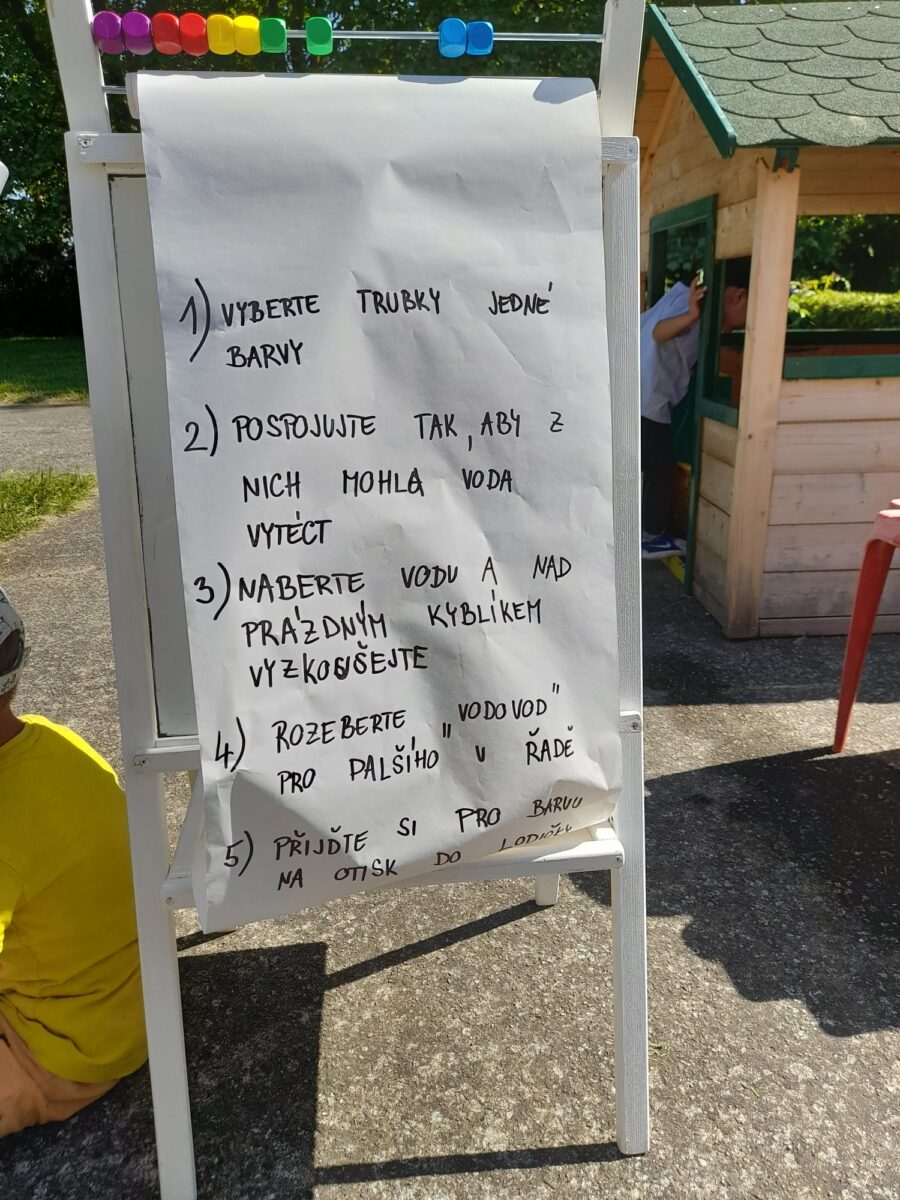 1) VYBERTE TRUBKY JEDNÉ
BARVY
2) POSPOJUJTE TAK, ABY Z
NICH MOHLA VODA
VYTÉCT
3) NABERTE VODU A NAD
PRÁZDNÝM KYBLÍKEM
VYZKOUŠEJTE
4) ROZEBERTE "VODOVOD"
PRO DALŠÍHO V ŘADĚ
5) PŘIJĎTE SI PRO BARVU
NA OTISK DO LODIČKY